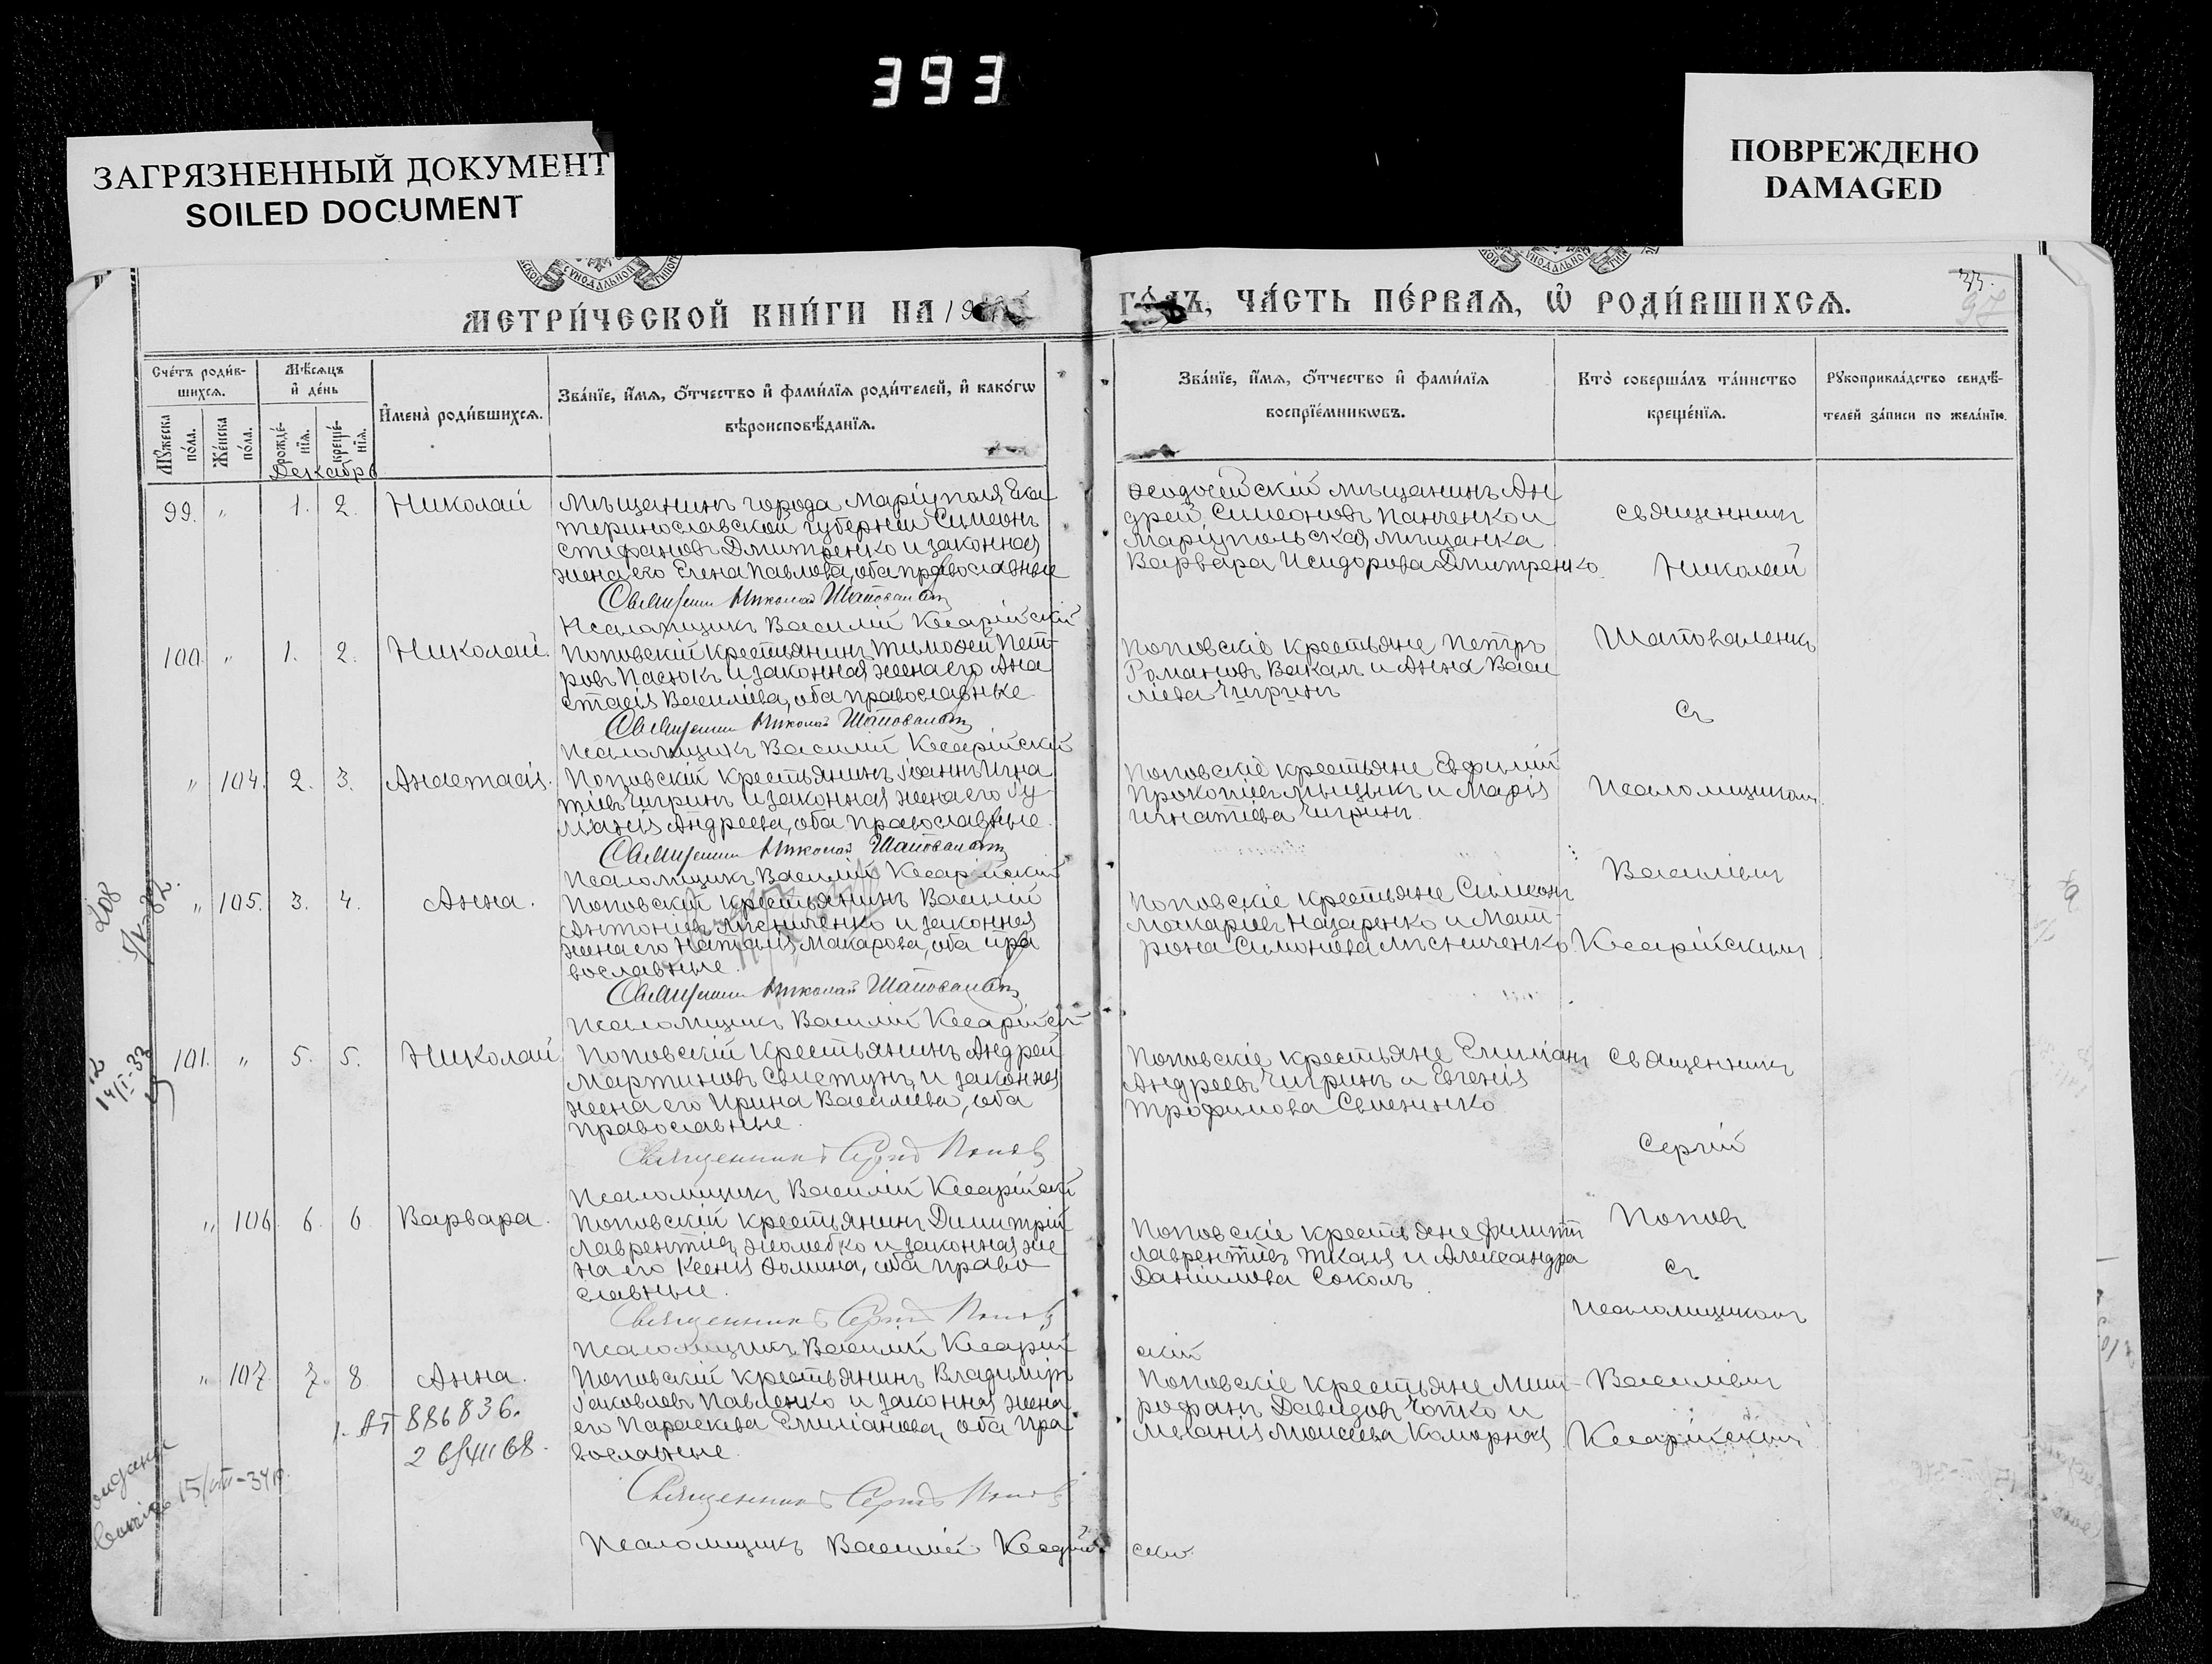 393
ЗАГРЯЗНЕННЫЙ ДОКУМЕНТ
SOILED DOCUMENT
ПОВРЕЖДЕНО
DAMAGED
МЕТРИ́ЧЕСКОЙ КНИ́ГИ НА 19
ГО́ДЪ, ЧА́СТЬ ПЕ́РВАѦ, Ѡ РОДИ́ВШИХСѦ.
33.
97
Сче́тъ роди́в-
шихсѧ.
Мѣ́сѧцъ
и҆ де́нь
И҆мена̀ роди́вшихсѧ.
Зва́нїе, и҆́мѧ, ѻ҆́тчество и҆ фами́лїѧ роди́телей, и҆ како́гѡ
вѣроисповѣ́данїѧ.
Мꙋ́жеска
по́ла.
Же́нска
по́ла.
рожде́-
нїѧ.
креще́-
нїѧ.
Декабрь
Зва́нїе, и҆́мѧ, ѻ҆́тчество и҆ фами́лїѧ
воспрїе́мникѡвъ.
Кто̀ соверша́лъ та́инство
креще́нїѧ.
Рꙋкоприкла́дство свидѣ́-
телей за́писи по жела́нїю.
99. " 1. 2. Николай
Мѣщанинъ города Маріуполя Ека
теринославской губерніи Симеонъ
Стефановъ Дмитренко и законная
жена его Елена Павлова, оба православные
Священникъ Николай Шаповаленко
Псаломщикъ Василій Кесарійскій
Ѳеодосійскій мѣщанинъ Ан
дрей Симеоновъ Панченко и
Маріупольская мѣщанка
Варвара Исидорова Дмитренко
Священникъ
Николай
Шаповаленко
съ
Псаломщикомъ
Василіемъ
Кесарійскимъ
100. " 1. 2. Николай.
Поповскій крестьянинъ Тимоѳей Пет-
ровъ Пасюкъ и законная жена его Ана
стасія Василіева, оба православные
Священникъ Николай Шаповаленко
Псаломщикъ Василій Кесарійскій
Поповскіе крестьяне Петръ
Романовъ Вакалъ и Анна Васи
ліева Чигринъ
" 104. 2. 3. Анастасія.
Поповскій крестьянинъ Іоаннъ Игна
тіевъ Чигринъ и законная жена его Іу
ліанія Андреева, оба православные.
Священникъ Николай Шаповаленко
Псаломщикъ Василій Кесарійскій
Поповскіе крестьяне Евфимій
Прокопіевъ Мыцыкъ и Марія
Игнатіева Чигринъ.
208
5/V-32.
" 105. 3. 4. Анна.
Поповскій крестьянинъ Василій
Антоніевъ Лѣсниченко и законная
жена его Наталія Макарова, оба пра
вославные.
Священникъ Николай Шаповаленко
Псаломщикъ Василій Кесарійскій
Поповскіе крестьяне Симеонъ
Макаріевъ Назаренко и Мат-
рона Симонова Лѣсниченко
12
14/I-33
101. " 5. 5. Николай
Поповскій крестьянинъ Андрей
Мартиновъ Свистунъ, и законная
жена его Ирина Василіева, оба
православные.
Священникъ Сергій Поповъ
Псаломщикъ Василій Кесарійскій
Поповскіе крестьяне Емиліанъ
Андреевъ Чигринъ и Евгенія
Трофимова
Священникъ
Сергій
Поповъ
съ
псаломщикомъ
Василіемъ
Кесарійскимъ
" 106. 6. 6. Варвара.
Поповскій крестьянинъ Димитрій
Лаврентіевъ и законная же
на его Ксенія Ѳомина, оба право
славные.
Священникъ Сергій Поповъ
Псаломщикъ Василій Кесарій
скій
Поповскіе крестьяне Филиппъ
Лаврентіевъ Ткаля и Александра
Даніилова Соколъ
" 107. 7. 8. Анна.
1. АТ 886836.
Поповскій крестьянинъ Владиміръ
Іаковлевъ Павленко и законная жена
его Параскева Емиліанова, оба пра
вославные.
Священникъ Сергій Поповъ
Псаломщикъ Василій Кесарій
скій.
Поповскіе крестьяне Мит-
рофанъ Давидовъ Чопко и
Меланія Моисеева Коморная
15/VIII-34